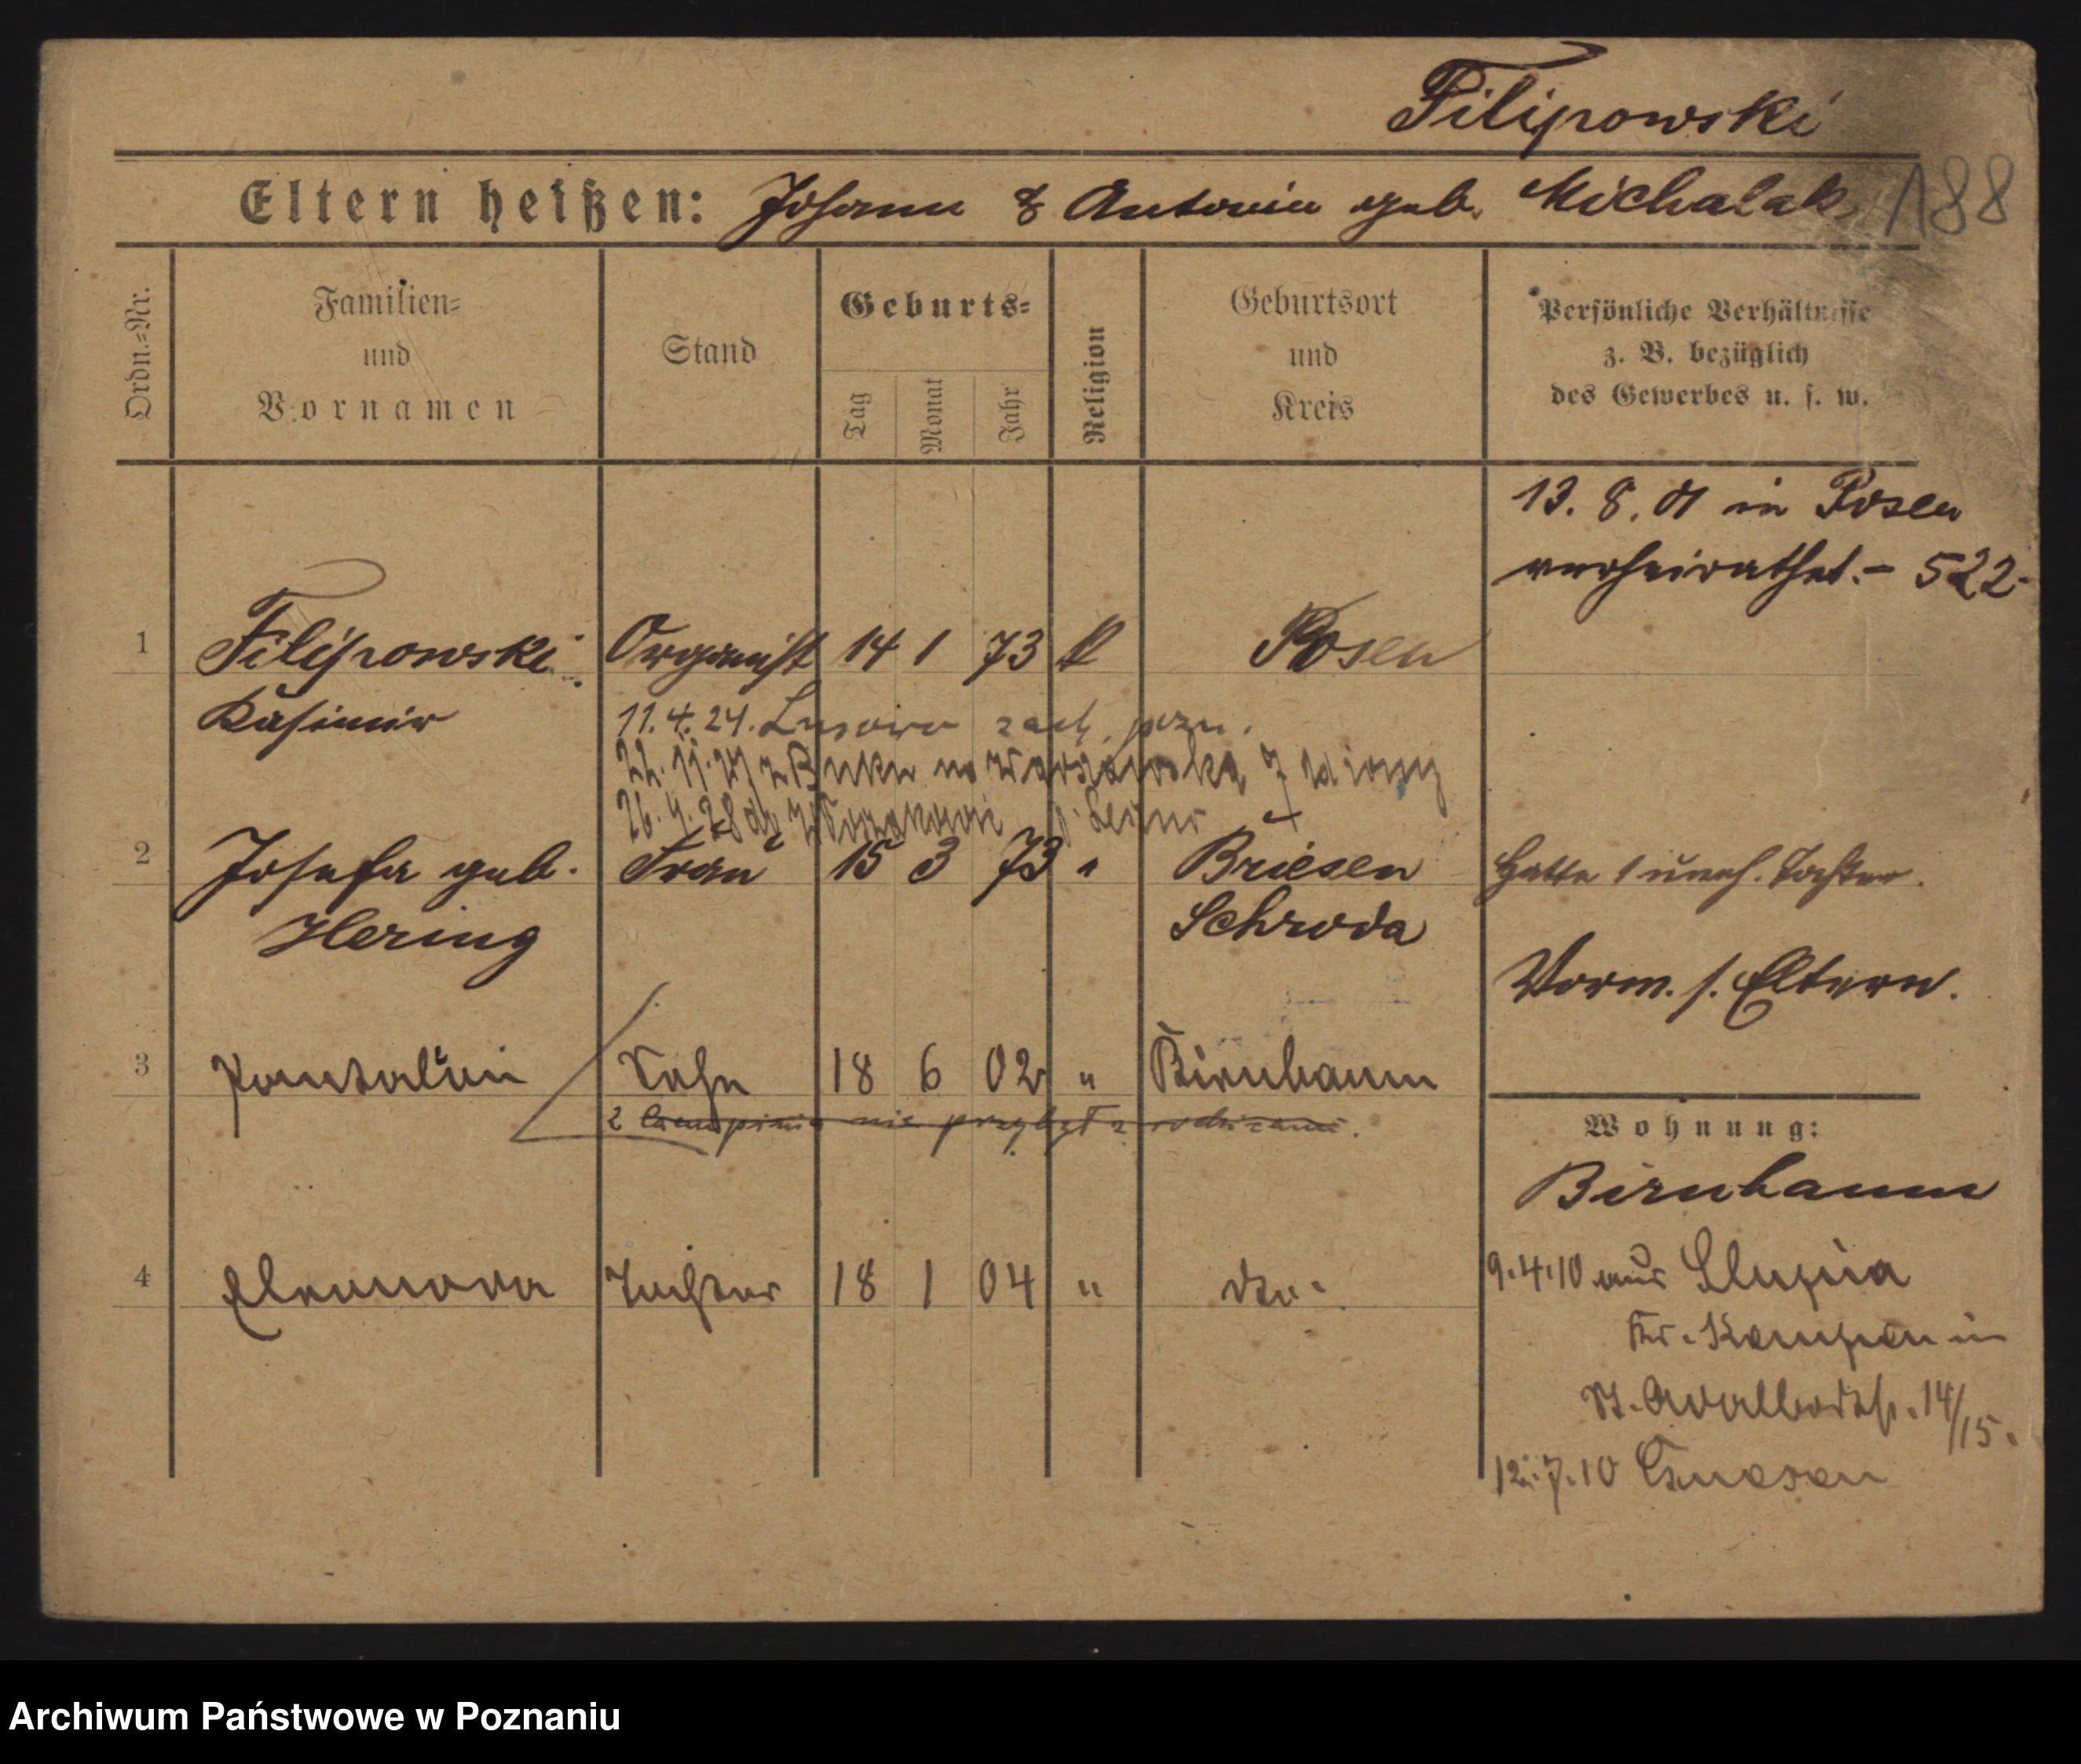 Filipowski
Eltern heißen: Johann & Antonin geb. Michalak 188
Ordn.=Nr.
Familien=
und
Vornamen
Stand
Geburts=
Tag
Monat
Jahr
Religion
Geburtsort
und
Kreis
Persönliche Verhältnisse
z. B. bezüglich
des Gewerbes u. s. w.
13. 8. 01 in Posen
verheirathet. - 522.
1 Filipowski Organist 14 1 73 k Posen
Kasimir
11.4.24. Lusowo zach. pozn.
2 Josefa geb. Frau 15 3 73 " Briesen
Hering Schroda
Hatte 1 uneh. Tochter.
Vorm. s. Eltern.
3 Pantaleon Sohn 18 6 02 " Birnbaum
nie przybył z rodzicami.
4 Eleonora Tochter 18 1 04 " dto.
Wohnung:
Birnbaum
9.4.10 aus Slupia
Kr. Kempen in
St. Adalbertstr. 14/15.
12.7.10 Gnesen
Archiwum Państwowe w Poznaniu